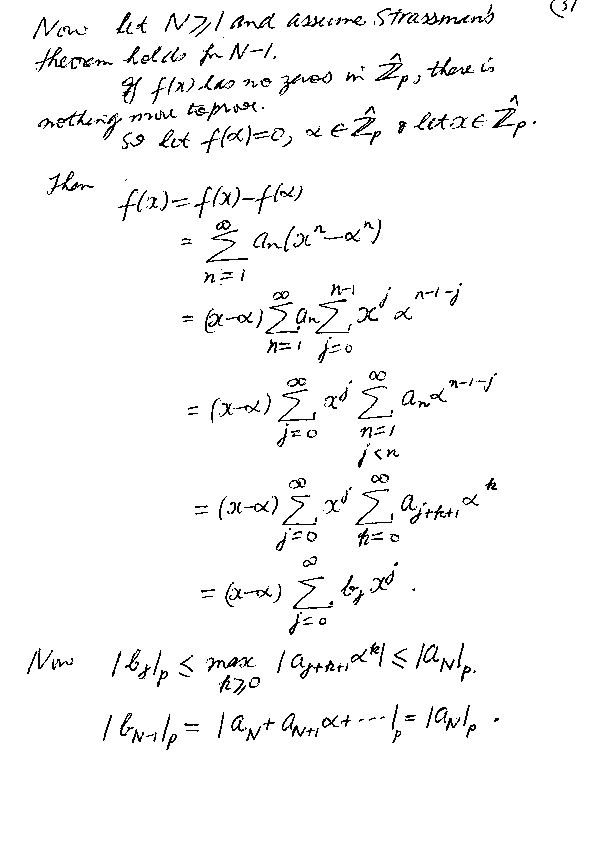 (5)
Now let N⩾1 and assume Strassman's
theorem holds for N-1.
If f(x) has no zeros in Ẑ_p, there is
nothing more to prove.
So let f(α)=0, α ∈ Ẑ_p & let x ∈ Ẑ_p.
Then
f(x) = f(x) - f(α)
= ∑_{n=1}^{∞} a_n(x^n - α^n)
= (x-α) ∑_{n=1}^{∞} a_n ∑_{j=0}^{n-1} x^j α^{n-1-j}
= (x-α) ∑_{j=0}^{∞} x^j ∑_{n=1, j<n}^{∞} a_n α^{n-1-j}
= (x-α) ∑_{j=0}^{∞} x^j ∑_{k=0}^{∞} a_{j+k+1} α^k
= (x-α) ∑_{j=0}^{∞} b_j x^j .
Now |b_j|_p ≤ max_{k⩾0} |a_{j+k+1} α^k| ≤ |a_N|_p.
|b_{N-1}|_p = |a_N + a_{N+1} α + ⋯|_p = |a_N|_p .